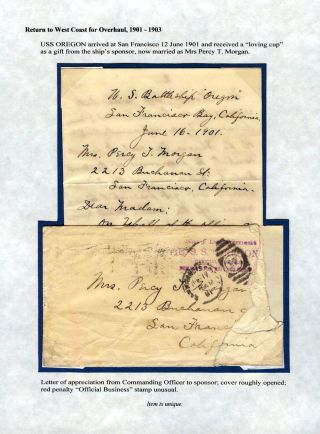 Return to West Coast for Overhaul, 1901 - 1903
USS OREGON arrived at San Francisco 12 June 1901 and received a "loving cup"
as a gift from the ship's sponsor, now married as Mrs Percy T. Morgan.
U. S. Battleship "Oregon"
San Francisco Bay, California.
June 16 - 1901.
Mrs. Percy T. Morgan
2213 Buchanan St.
San Francisco, California.
Dear Madam:
On behalf of the
Mrs. Percy T. Morgan
2213 Buchanan
San Franc
California
Letter of appreciation from Commanding Officer to sponsor; cover roughly opened;
red penalty "Official Business" stamp unusual.
Item is unique.